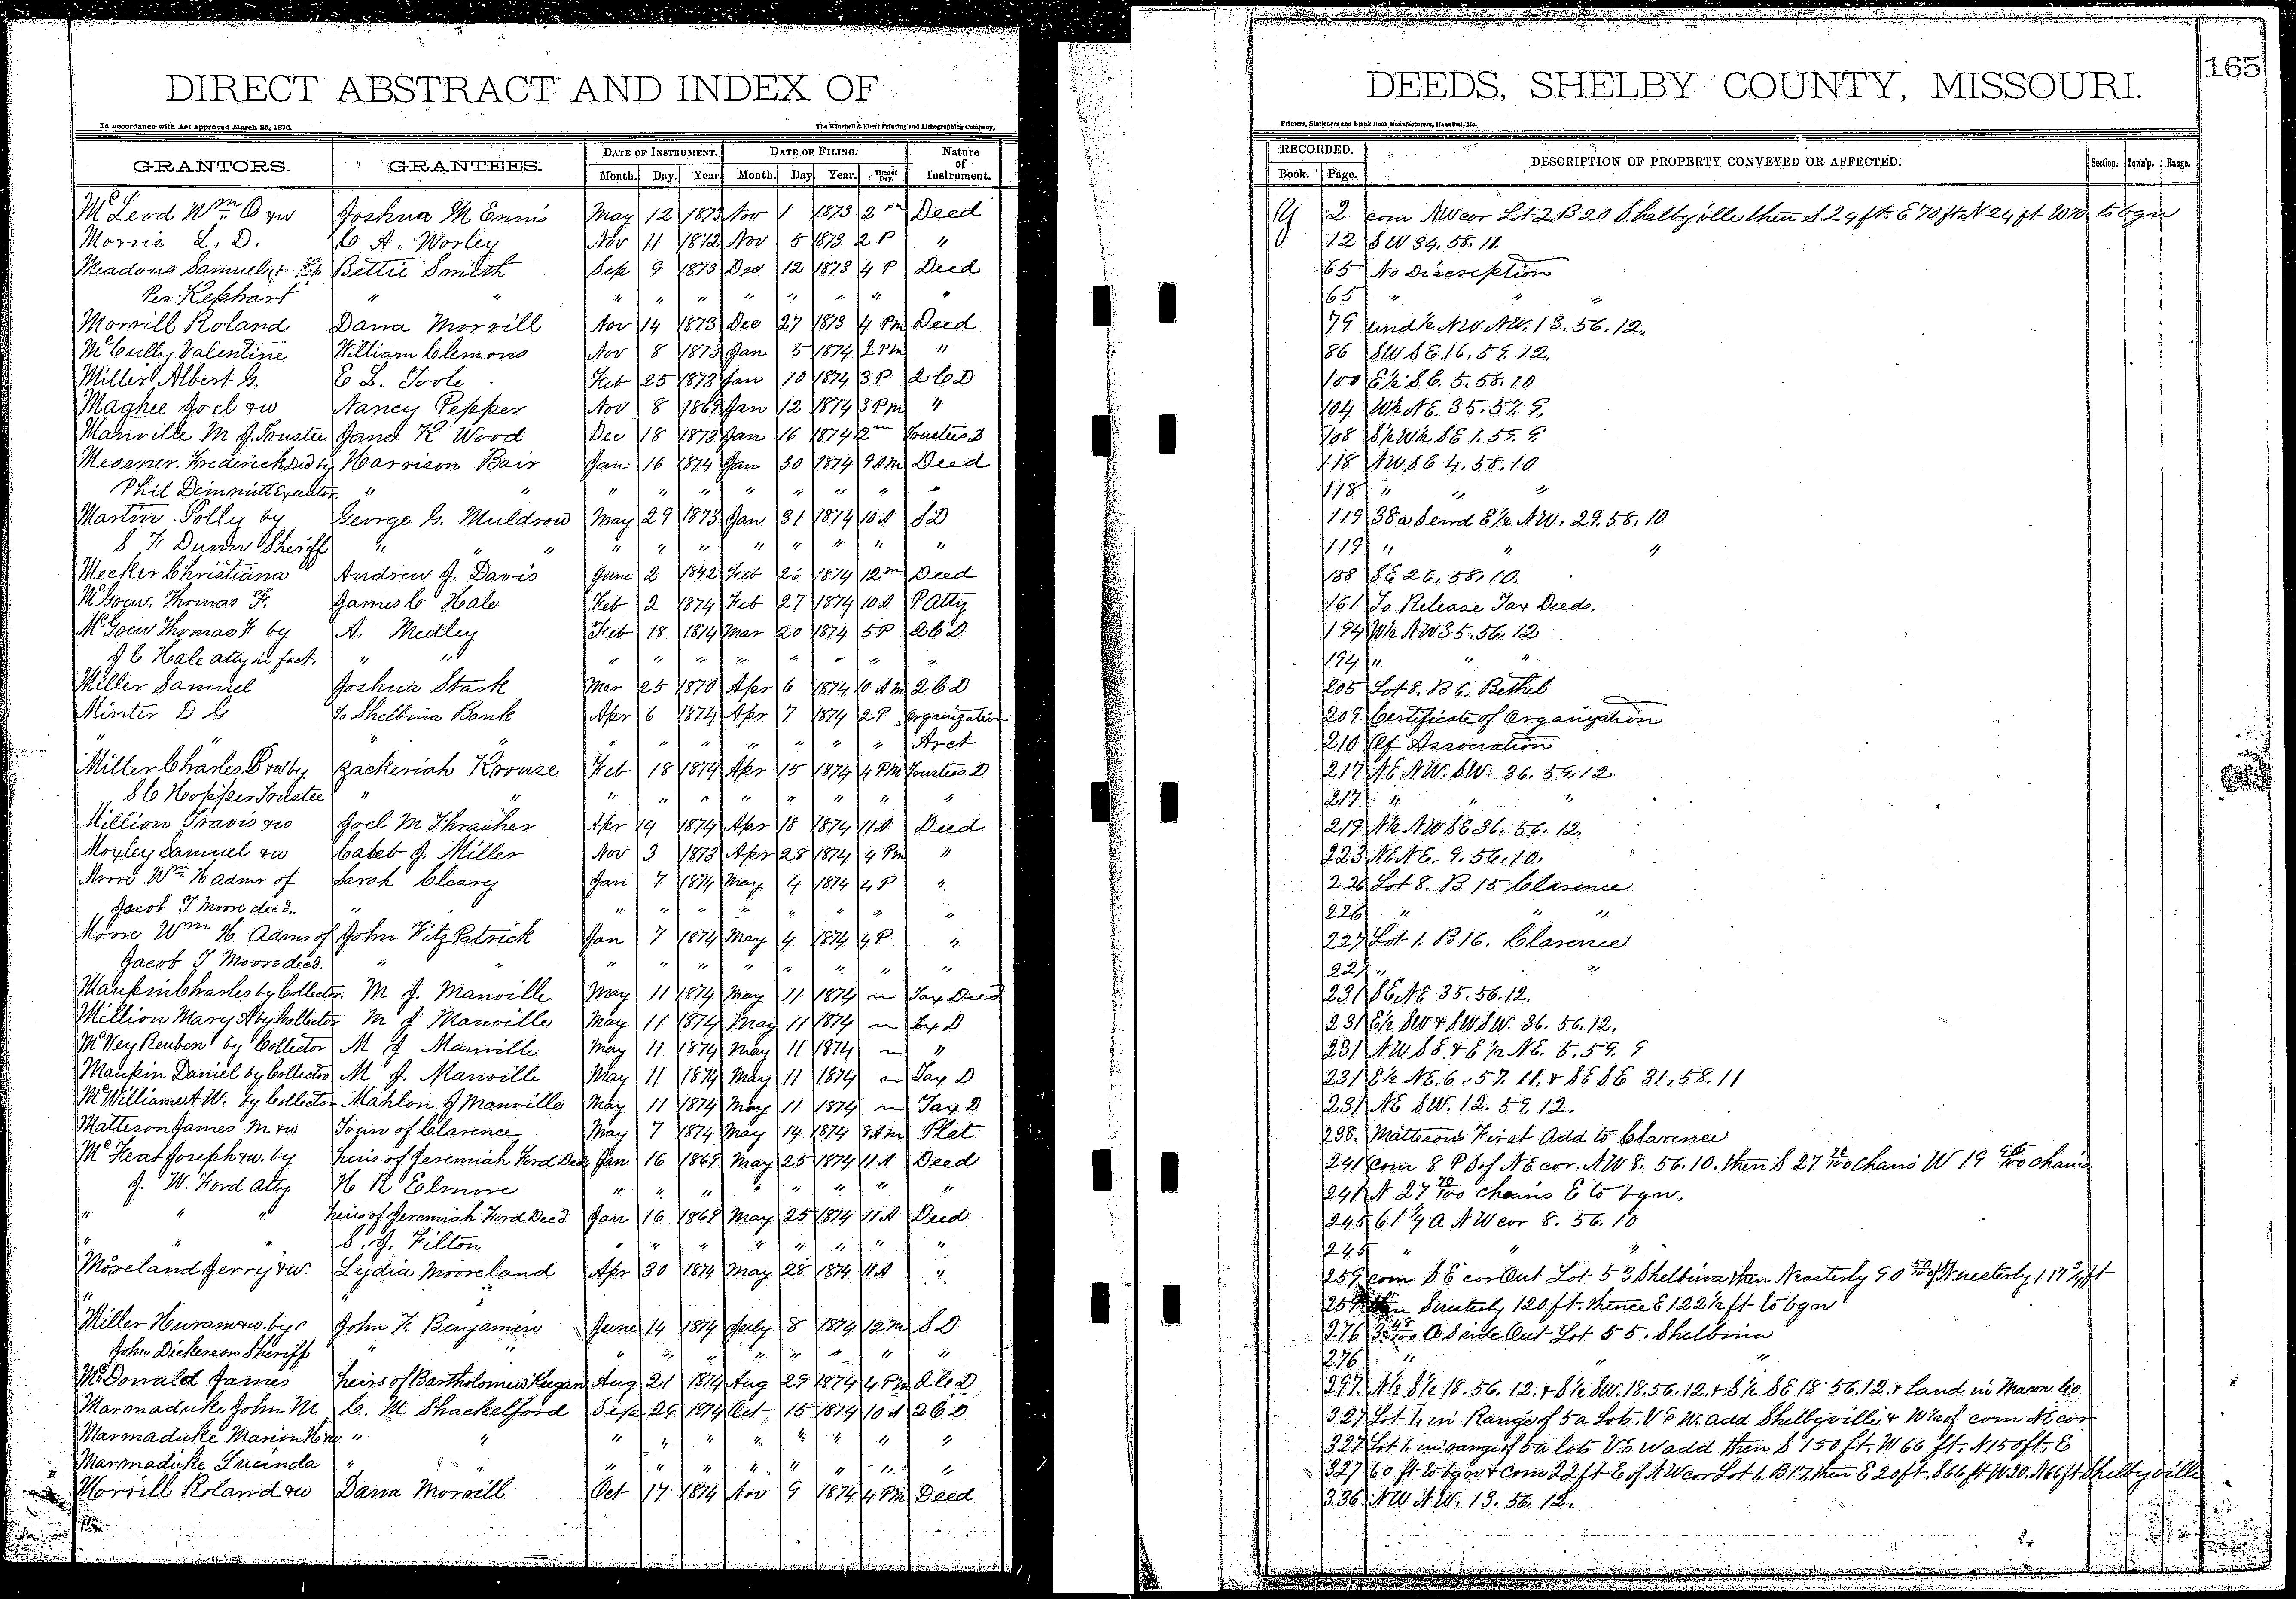 DIRECT ABSTRACT AND INDEX OF
In accordance with Act approved March 25, 1870.
The Winchell & Ebert Printing and Lithographing Company,
GRANTORS. GRANTEES. DATE OF INSTRUMENT. DATE OF FILING. Nature of Instrument.
Month. Day. Year Month. Day Year. Time of Day.
McLeod Wm & w Joshua M Ennis May 12 1873 Nov 1 1873 2 m Deed
Morris L. D. C A. Worley Nov 11 1872 Nov 5 1873 2 P "
Meadous Samuel Bettie Smith Sep 9 1873 Dec 12 1873 4 P Deed
Per Kephart " " " " " " " " " "
Morrill Roland Dana Morrill Nov 14 1873 Dec 27 1873 4 Pm Deed
McCully Valentine William Clemons Nov 8 1873 Jan 5 1874 2 Pm "
Miller Albert G. E L. Toole Feb 25 1873 Jan 10 1874 3 P 2 C D
Maghee Joel & w Nancy Pepper Nov 8 1869 Jan 12 1874 3 Pm "
Manville M J. Trustee Jane K Wood Dec 18 1873 Jan 16 1874 2 m Trustees D
Messner. Frederick Decd by Harrison Bair Jan 16 1874 Jan 30 1874 9 AM Deed
Phil Dimmitt Executor. " " " " " " " " " "
Martin Polly by George G. Muldrow May 29 1873 Jan 31 1874 10 A S D
S F Dunn Sheriff " " " " " " " " " " "
Mecker Christiana Andrew J. Davis June 2 1842 Feb 26 1874 12 m Deed
McGrew. Thomas F. James C Hale Feb 2 1874 Feb 27 1874 10 A P Atty
McGrew Thomas F by A. Medley Feb 18 1874 Mar 20 1874 5 P 2 C D
J C Hale atty in fact. " " " " " " " " " "
Miller Samuel Joshua Stark Mar 25 1870 Apr 6 1874 10 A M 2 C D
Minter D G To Shelbina Bank Apr 6 1874 Apr 7 1874 2 P Organization
" " " " " " " " " " " Arct
Miller Charles & w by Zackeriah Krouse Feb 18 1874 Apr 15 1874 4 PM Trustees D
S C Hopper Trustee " " " " " " " " " "
Million Travis & w Joel M Thrasher Apr 14 1874 Apr 18 1874 11 A Deed
Moxley Samuel & w Caleb J. Miller Nov 3 1873 Apr 28 1874 4 Pm "
Moore Wm H admr of Sarah Cleary Jan 7 1874 May 4 1874 4 P "
Jacob T Moore decd. " " " " " " " " "
Moore Wm H Admr of John FitzPatrick Jan 7 1874 May 4 1874 4 P "
Jacob T Moore decd. " " " " " " " " " "
Maupin Charles by Collector. M J. Manville May 11 1874 May 11 1874 " Tax Deed
Million Mary A by Collector M J Manville May 11 1874 May 11 1874 " Tax D
McVey Reuben by Collector M J Manville May 11 1874 May 11 1874 " "
Maupin Daniel by Collector M J. Manville May 11 1874 May 11 1874 " Tax D
McWilliams A W. by Collector Mahlon J Manville May 11 1874 May 11 1874 " Tax D
Matteson James M & w Town of Clarence May 7 1874 May 14 1874 8 Am Plat
Joseph & w. by heirs of Jeremiah Ford Decd Jan 16 1869 May 25 1874 11 A Deed
J. W. Ford atty. H R Elmore " " " " " " " "
" " " heirs of Jeremiah Ford Decd Jan 16 1869 May 25 1874 11 A Deed
" " " S. J. Filton " " " " " " " "
Moreland Jerry & w. Lydia Mooreland Apr 30 1874 May 28 1874 11 A "
Miller Huram & w. by John F. Benjamin June 14 1874 July 8 1874 12 M S D
John Dickerson Sheriff " " " " " " " " "
McDonald James heirs of Bartholomew Keegan Aug 21 1874 Aug 29 1874 4 Pm 2 C D
Marmaduke John M C. M. Shackelford Sep 26 1874 Oct 15 1874 10 A 2 C D
Marmaduke Marion H & w " " " " " " " " " "
Marmaduke Lucinda " " " " " " " " " "
Morrill Roland & w Dana Morrill Oct 17 1874 Nov 9 1874 4 PM Deed
165
DEEDS, SHELBY COUNTY, MISSOURI.
Printers, Stationers and Blank Book Manufacturers, Hannibal, Mo.
RECORDED. DESCRIPTION OF PROPERTY CONVEYED OR AFFECTED. Section. Town'p. Range.
Book. Page.
G 2 com NW cor Lot 2. B 20 Shelbyville then S 24 ft. E 70 ft N 24 ft W 70 to bgn
12 S W 34. 58. 11.
65 No Discreption
65 " " "
79 und ½ NW NW. 13. 56. 12.
86 SW SE. 16. 59. 12.
100 E½ SE. 5. 58. 10
104 W½ NE. 35. 57. 9.
108 S½ W½ SE 1. 59. 9.
118 NW SE 4. 58. 10
118 " " "
119 38 a S end E½ NW. 29. 58. 10
119 " " "
158 SE 26. 58. 10.
161 To Release Tax Deeds.
194 W½ NW 35. 56. 12
194 " " "
205 Lot 8. B 6. Bethel
209. Certificate of Organization
210 Of Association
217 NE NW. SW. 36. 59. 12
217. " " "
219 N½ NW SE 36. 56. 12.
223 NE NE. 9. 56. 10.
226 Lot 8. B 15 Clarence
226 " " "
227 Lot 1. B 16. Clarence
227 " "
231 SE NE 35. 56. 12.
231 E½ SW & SW SW. 36. 56. 12.
231 NW SE & E½ NE. 5. 59. 9
231 E½ NE. 6. 57. 11. & SE SE 31. 58. 11
231 NE SW. 12. 59. 12.
238. Matteson's First Add to Clarence
241 com 8 P S of NE cor. NW 8. 56. 10. then S 27 70/100 chains W 19 chains
241 N 27 70/100 chains E to bgn.
245 61 ¼ A NW cor 8. 56. 10
245 " "
259 com SE cor Out Lot 53 Shelbina then N easterly 90 N westerly 117 ft
259 then S westerly 120 ft. thence E 122½ ft to bgn
276 3 48/100 A S side Out Lot 55. Shelbina
276 " " "
297. N½ S½ 18. 56. 12. & S½ SW. 18. 56. 12. & S½ SE 18. 56. 12. & land in Macon Co
327 Lot 1. in Range of 5 a Lots. V's W. add Shelbyville & W½ of com NE cor
327 Lot 1. in range of 5 a lots V's W add then S 150 ft. W 66 ft. N 150 ft. E
327 60 ft to bgn & com 22 ft E of NW cor Lot 1. B 17. then E 20 ft. S 66 ft W 20. N 66 ft Shelbyville
336 NW NW. 13. 56. 12.